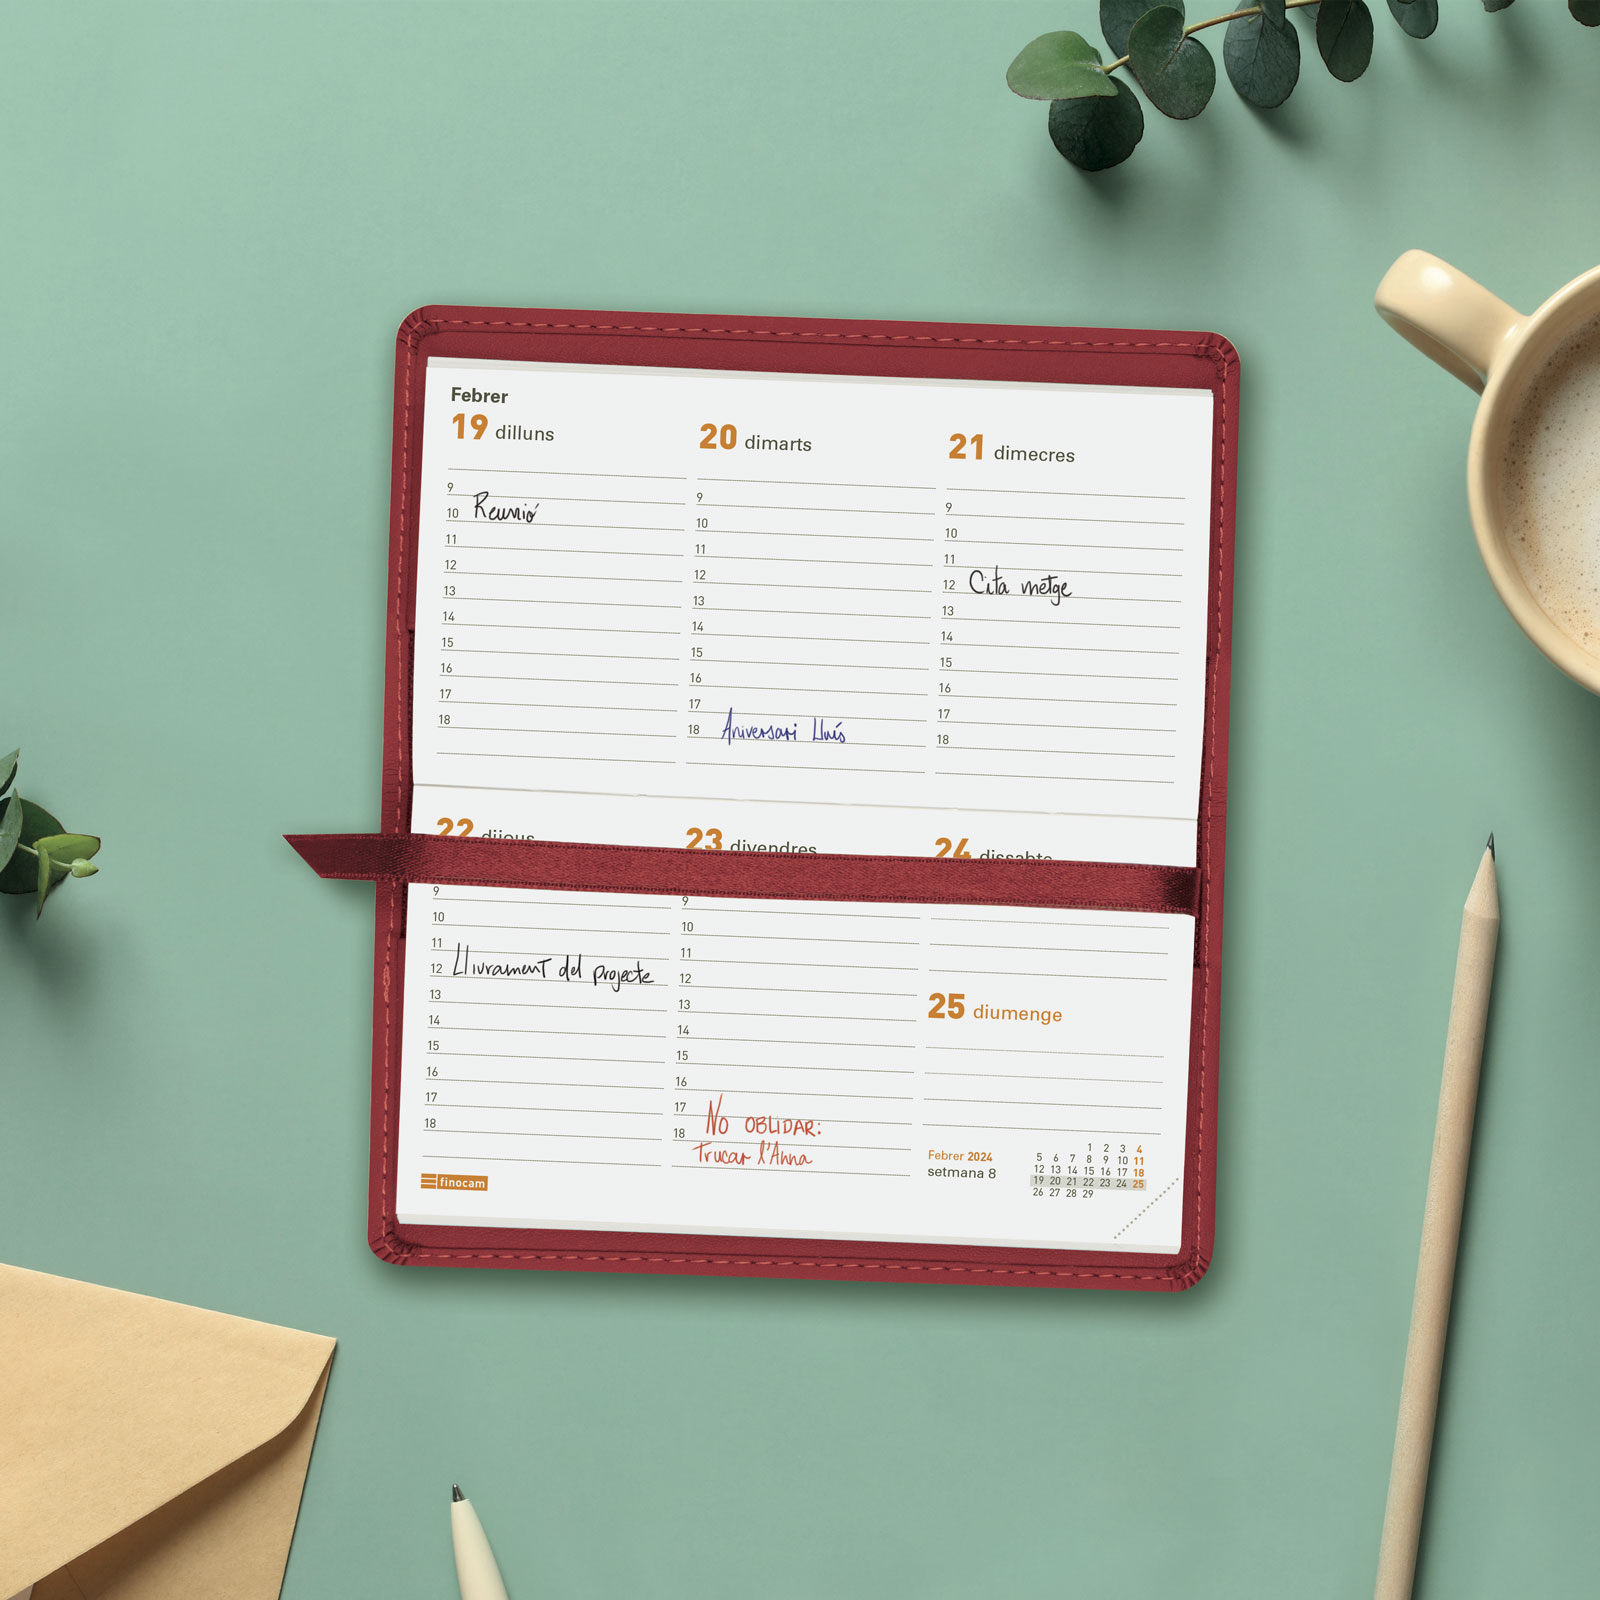 Febrer
19 dilluns
9
10 Reunió
11
12
13
14
15
16
17
18
20 dimarts
9
10
11
12
13
14
15
16
17
18 Aniversari Lluís
21 dimecres
9
10
11
12 Cita metge
13
14
15
16
17
18
22 dijous
9
10
11
12 Lliurament del projecte
13
14
15
16
17
18
finocam
23 divendres
9
10
11
12
13
14
15
16
17 No OBLIDAR:
18 Trucar l'Anna
24 dissabte
25 diumenge
Febrer 2024
setmana 8
1 2 3 4
5 6 7 8 9 10 11
12 13 14 15 16 17 18
19 20 21 22 23 24 25
26 27 28 29